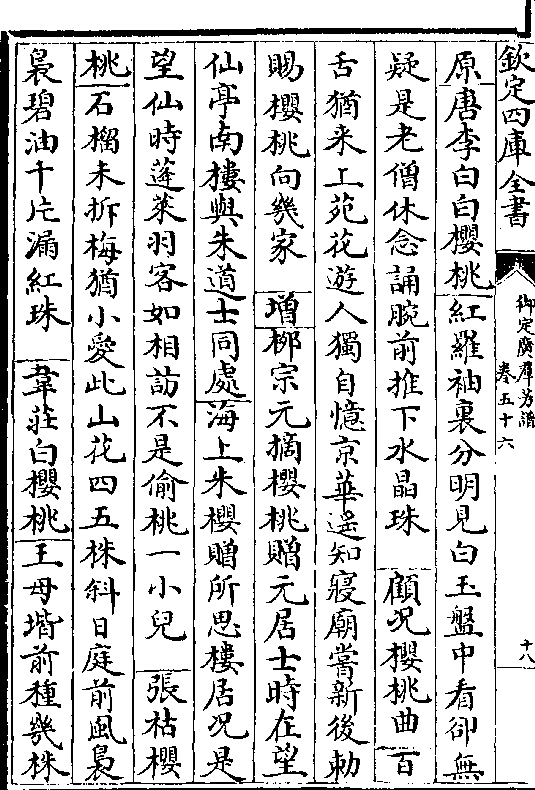 欽定四庫全書
御定廣羣芳譜
卷五十六
十八
原唐李白白櫻桃紅羅袖裏分明見白玉盤中看卻無
疑是老僧休念誦腕前推下水晶珠 顧况櫻桃曲百
舌猶来上苑花遊人獨自憶京華遥知寢廟嘗新後勅
賜櫻桃向幾家 增栁宗元摘櫻桃贈元居士時在望
仙亭南樓與朱道士同處海上朱櫻贈所思樓居况是
望仙時蓬萊羽客如相訪不是偷桃一小兒 張祜櫻
桃石榴未拆梅猶小愛此山花四五株斜日庭前風裊
裊碧油千片漏紅珠 韋莊白櫻桃王母堦前種幾株